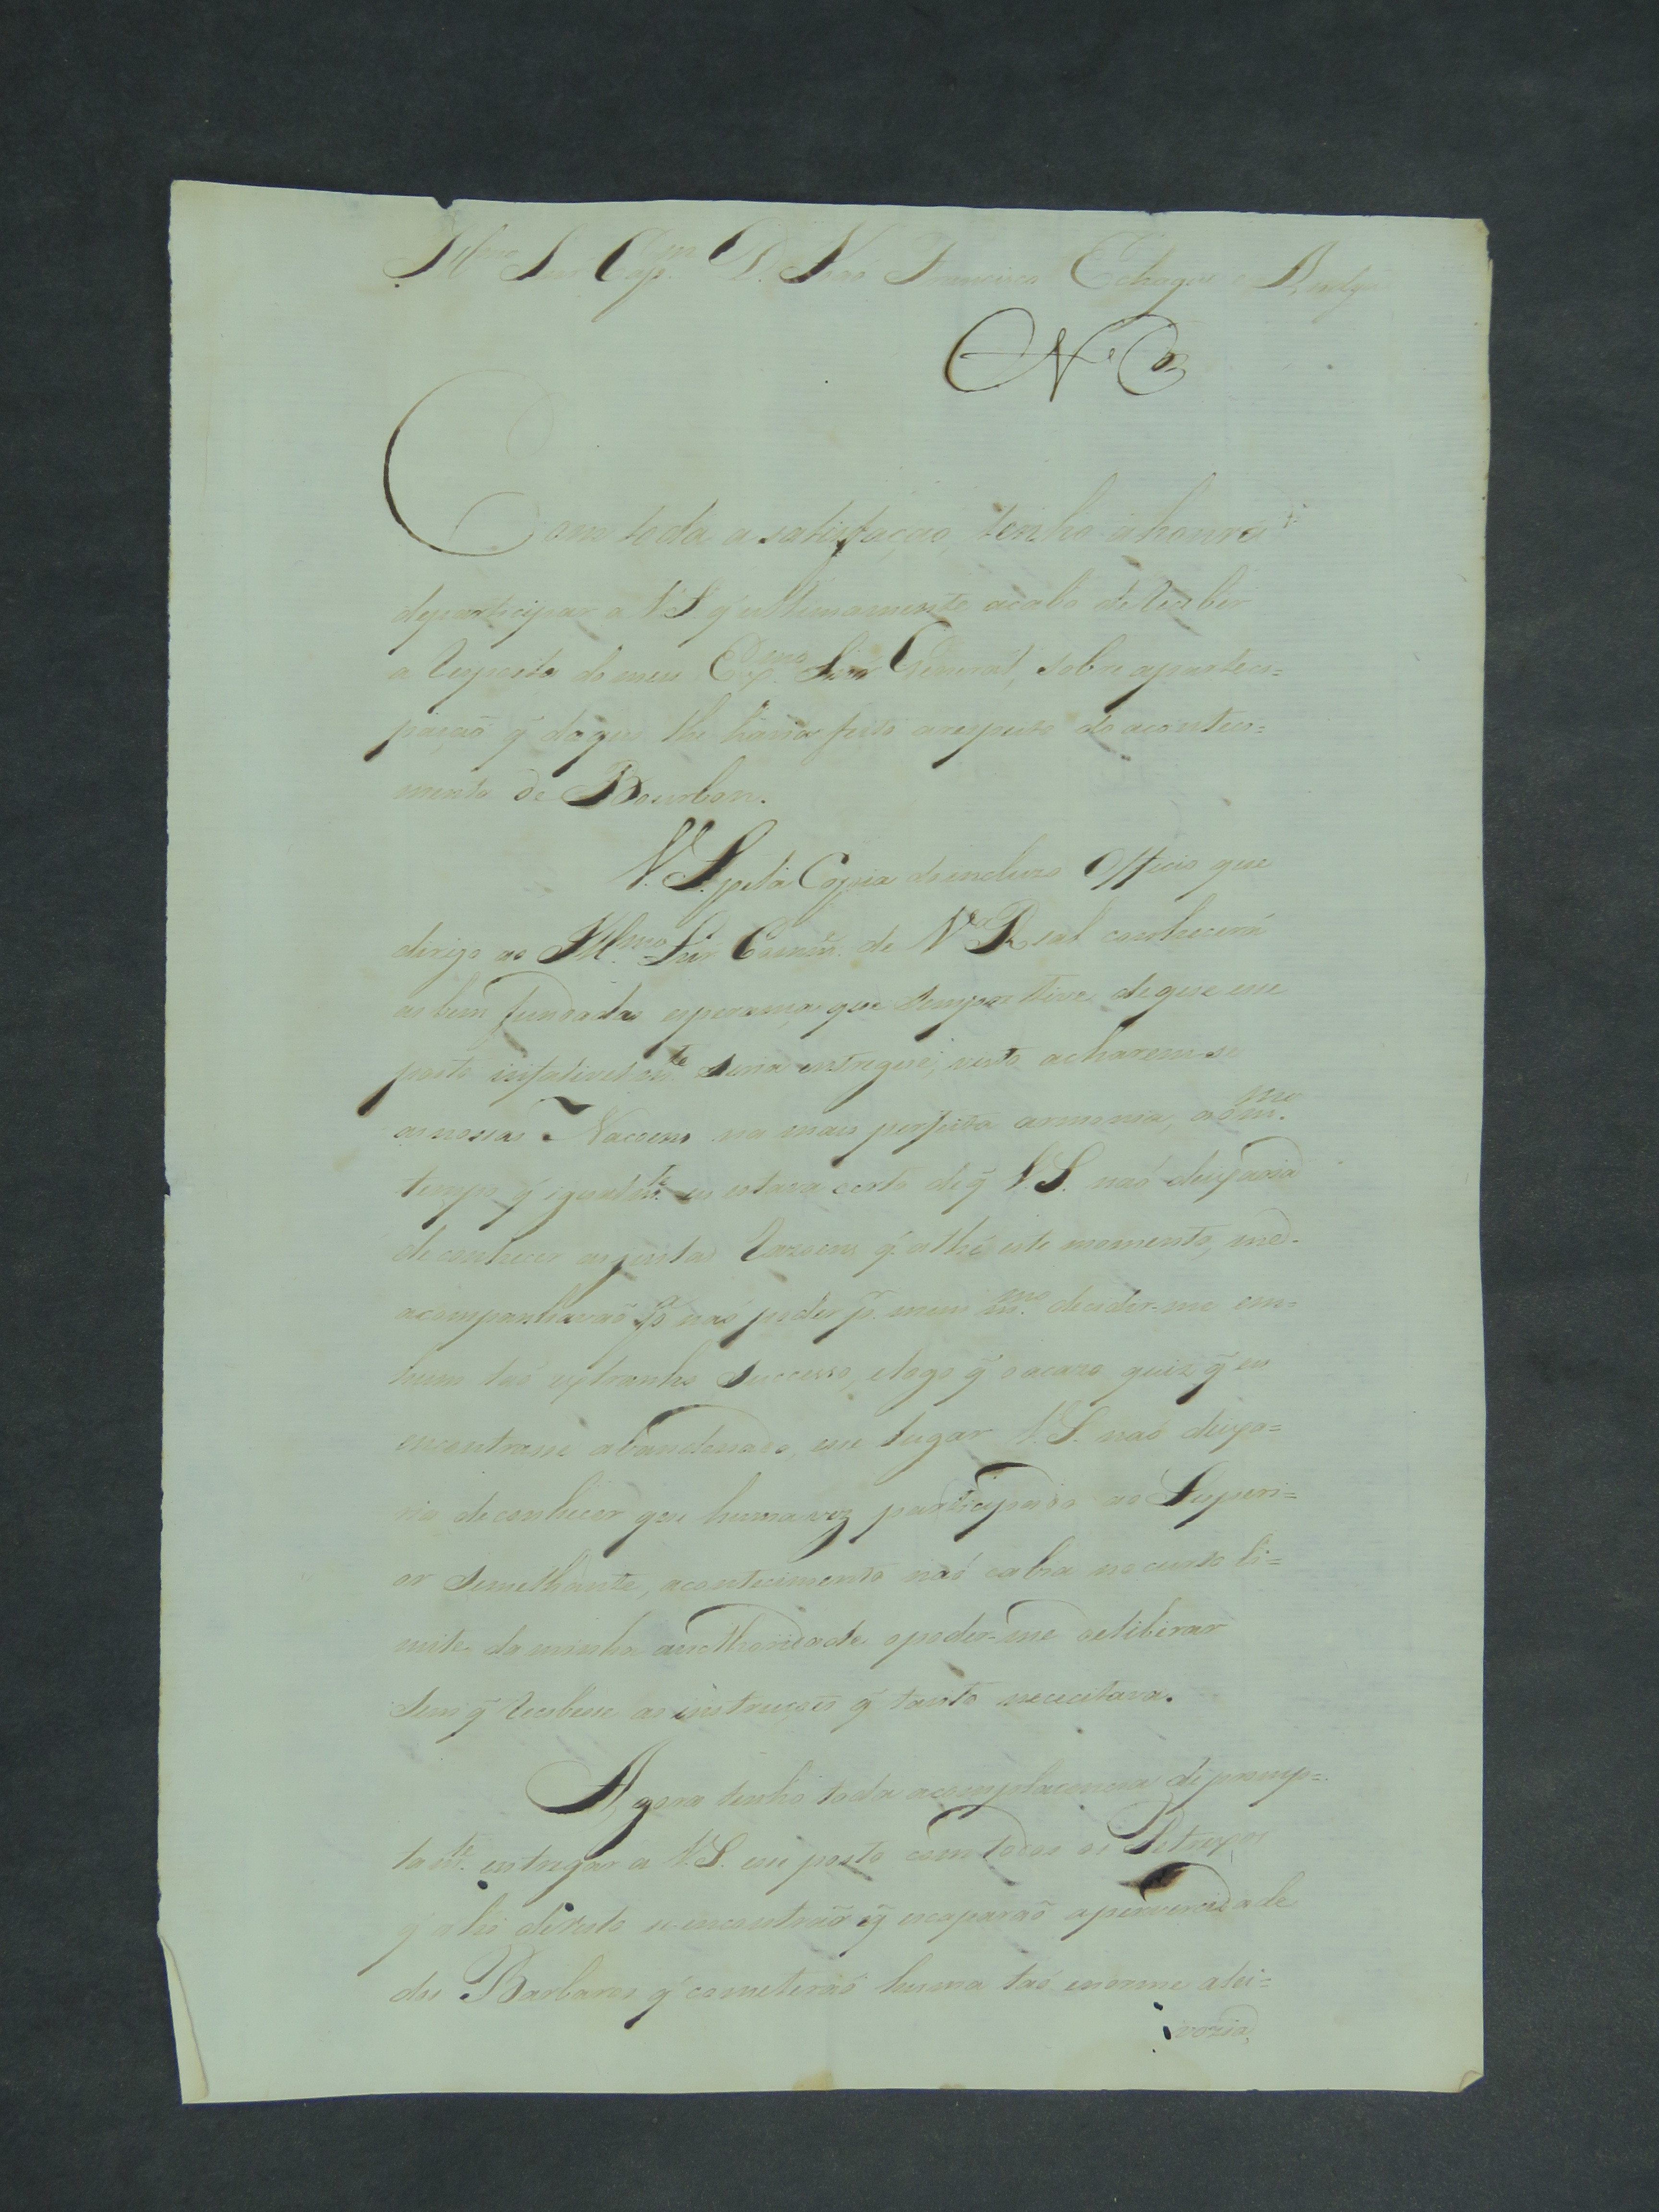 Illmo Snr Capm D. Joaõ Francisco Echague e Andya
No 3
Com toda a satisfação, tenho a honra de
departicipar a V.S. q̃ ultimamente acabo de receber
a resposta do meu Exmo Snr General, sobre aparteci=
pação q̃ daqui lhe havia feito arespeito do acontici=
mento de Bourbon.
V. S. pela Copia do incluzo Officio que
dirigo ao Illmo Snr Comm. de Va Real conhecerá
as bem fundadas esperanças que sempre tive de que esse
posto infalivelmte seria entregue; visto acharem-se
as nossas Nacoens na mais perfeita armonia, ao mmo
tempo q̃ igualmte eu estava certo de q̃ V.S. naõ deixaria
de conhecer as justas razoens q̃ athé este momento, me
acompanhavaõ pa naõ poder pr mim mmo decider-me em=
hum taõ extranho successo, e logo q̃ o acazo quiz q̃ eu
encontrase abandonado, esse lugar V.S. naõ deixa=
ria de conhecer que huma vez participado ao Superi=
or semelhante, acontecimento naõ cabia no curto li=
mite da minha authoridade o poder-me deliberar
sem q̃ recebese as instruçoẽs q̃ tanto necicitava.
Agora tenho toda acomplacencia de promp=
tamte entregar a V.S. esse posto com todos os Petrexos
q̃ alé dentro se encontraõ e q̃ escaparaõ aperverсidade
dos Barbaros q̃ cometeraõ huma taõ enorme alei=
vozia,